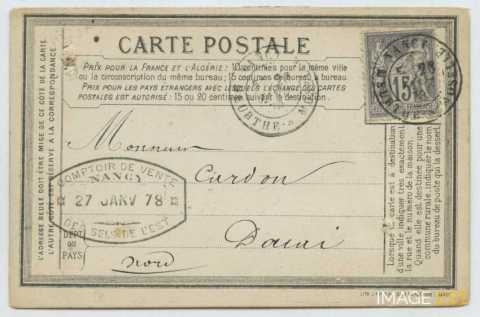 CARTE POSTALE
PRIX POUR LA FRANCE ET L'ALGÉRIE: 10 centimes pour la même ville
ou la circonscription du même bureau; 15 centimes de bureau à bureau
PRIX POUR LES PAYS ÉTRANGERS AVEC LESQUELS L'ÉCHANGE DES CARTES
POSTALES EST AUTORISÉ: 15 ou 20 centimes suivant la destination.
L'ADRESSE SEULE DOIT ÊTRE MISE DE CE CÔTÉ DE LA CARTE
L'AUTRE CÔTÉ EST RÉSERVÉ À LA CORRESPONDANCE.
NANCY
MEURTHE-&-M
15
Monsieur
Cordon
Douai
Nord
COMPTOIR DE VENTE
NANCY
27 JANV 78
DES SELS DE L'EST
DÉPT
OU
PAYS
Lorsque la carte est à destination
d'une ville indiquer très exactement
la rue et le numéro de la maison.
Quand elle est destinée pour une
commune rurale, indiquer le nom
du bureau de poste qui la dessert.
IMAGE